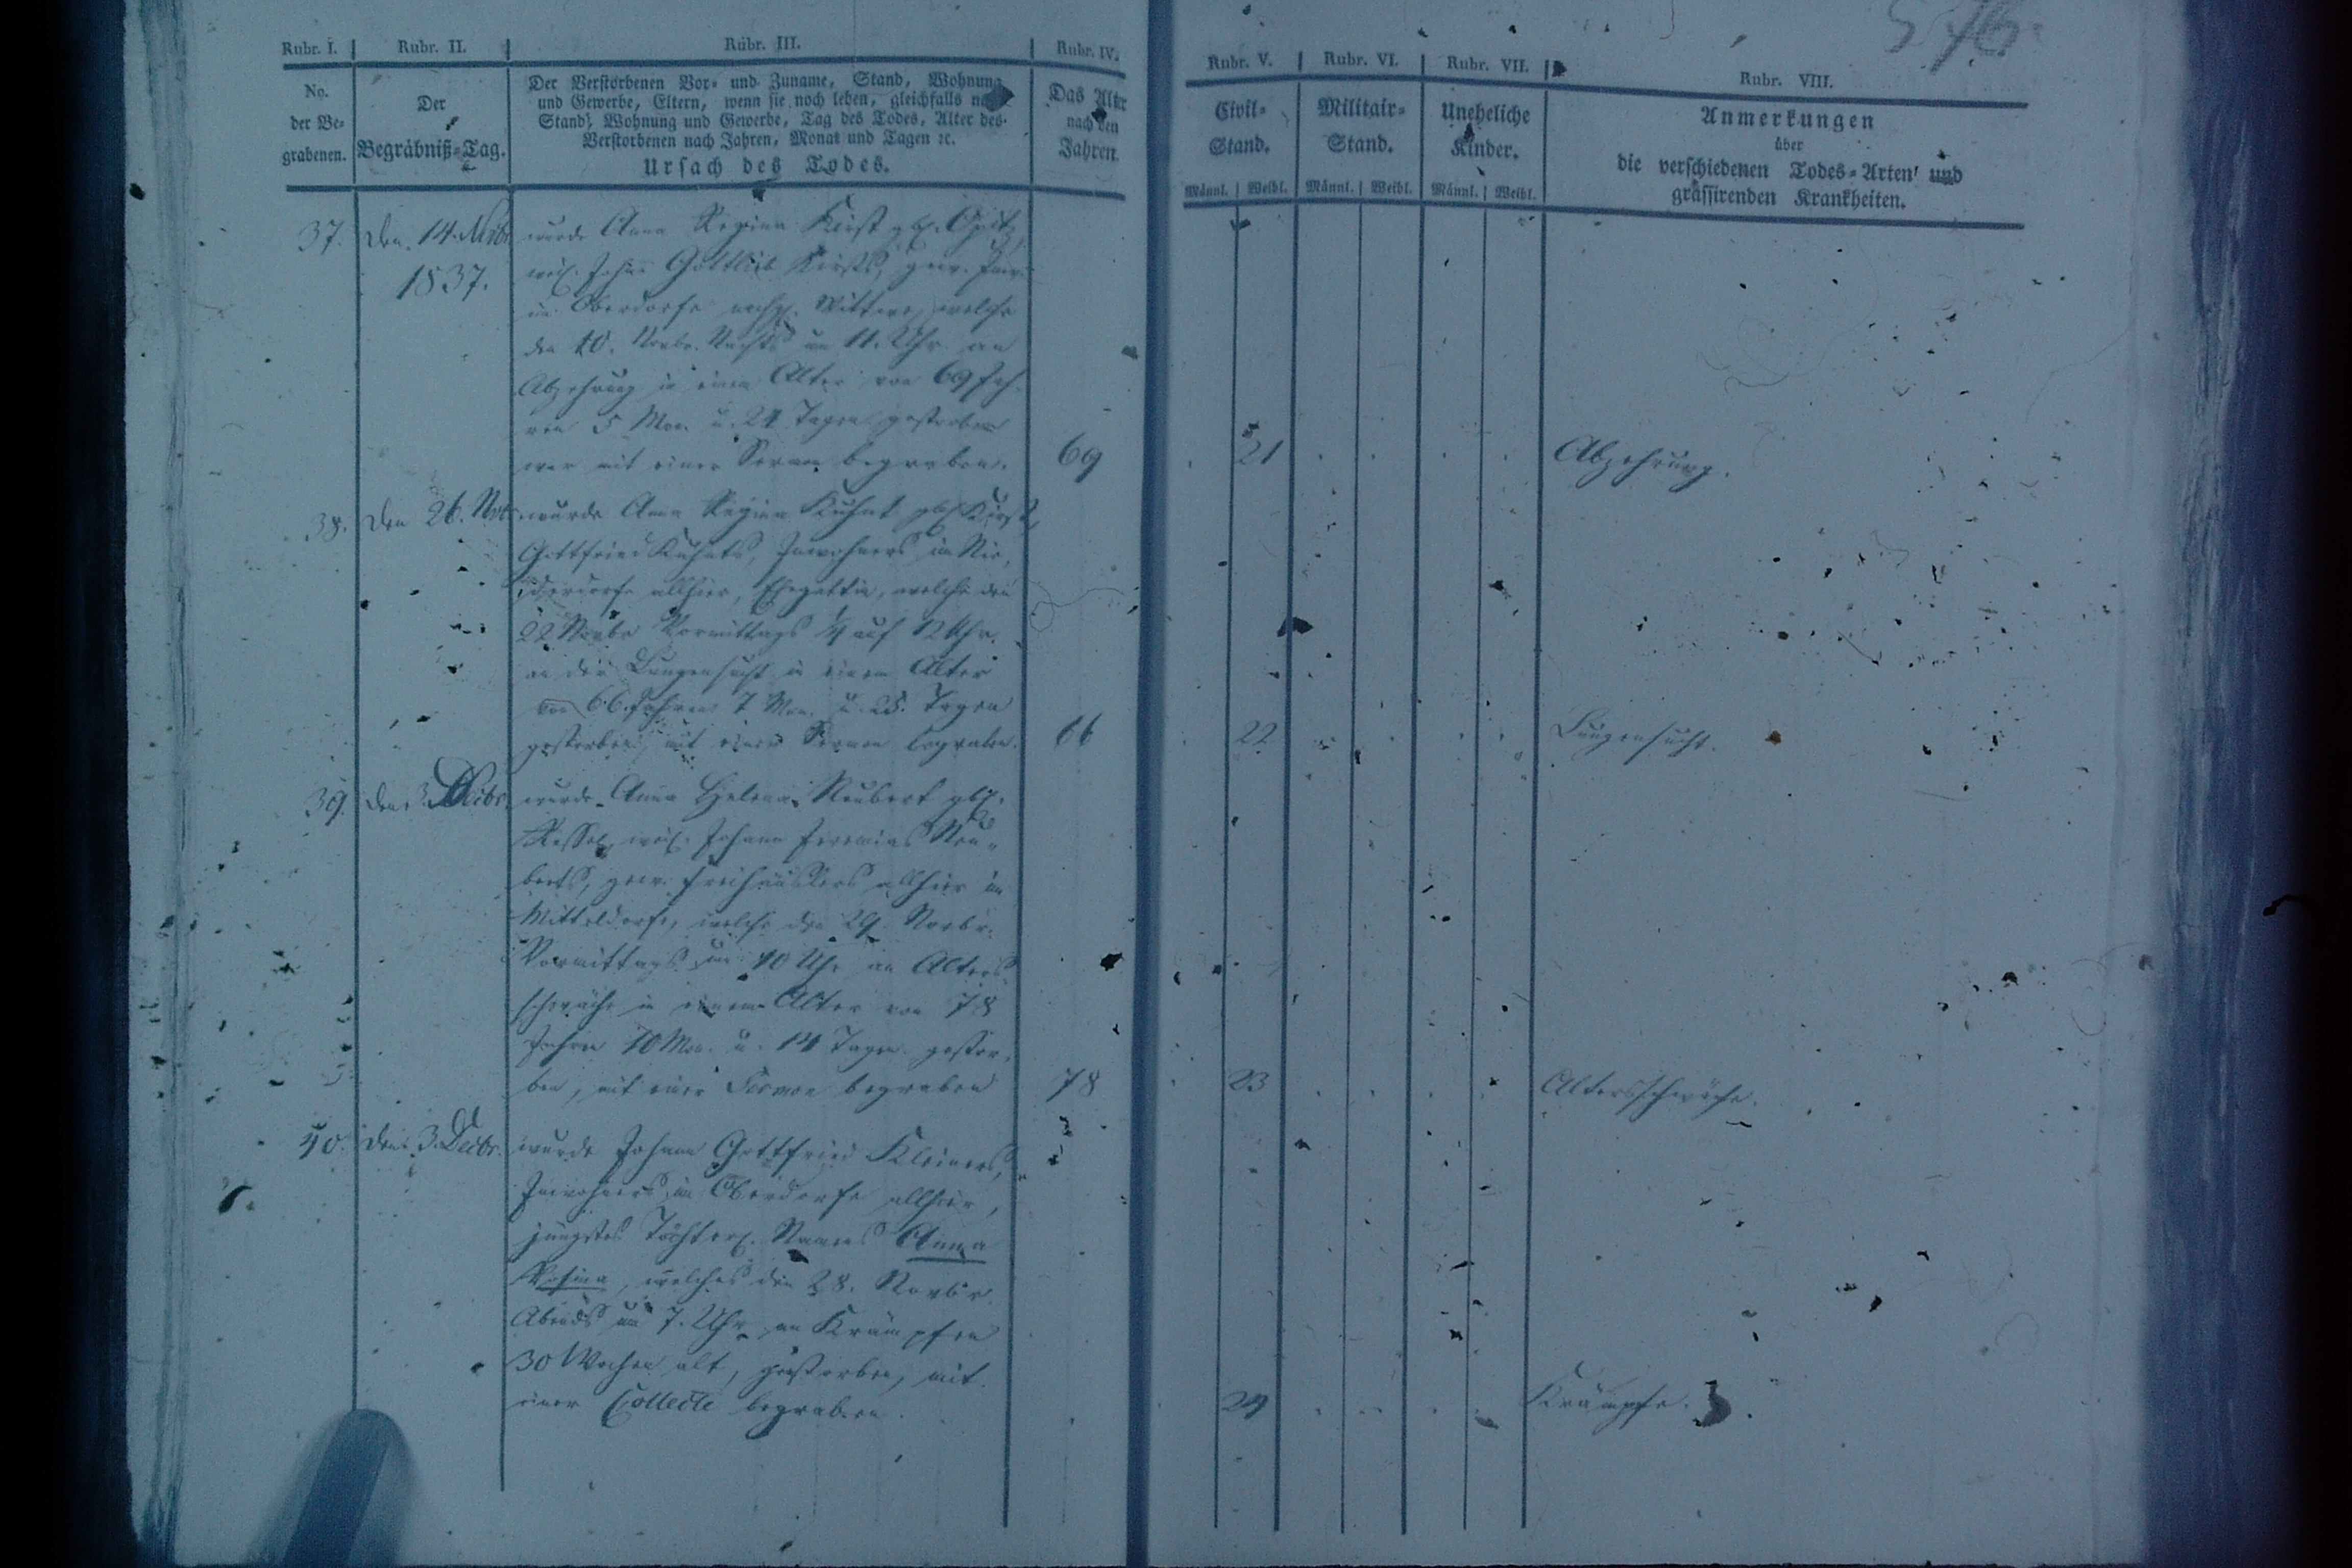 576.
Rubr. I. Rubr. II. Rubr. III. Rubr. IV. Rubr. V. Rubr. VI. Rubr. VII. Rubr. VIII.
No.
der Be=
grabenen.
Der
Begräbniß=Tag.
Der Verstorbenen Vor= und Zuname, Stand, Wohnung
und Gewerbe, Eltern, wenn sie noch leben, gleichfalls
Stand, Wohnung und Gewerbe, Tag des Todes, Alter des
Verstorbenen nach Jahren, Monat und Tagen ꝛc.
Ursach des Todes.
Das Alter
nach den
Jahren.
Civil=
Stand.
Männl. Weibl.
Militair=
Stand.
Männl. Weibl.
Uneheliche
Kinder.
Männl. Weibl.
Anmerkungen
über
die verschiedenen Todes=Arten und
grassirenden Krankheiten.
37. den 14. Novbr.
1837.
wurde Anna Regina Kirst gb. Opitz,
weil. Johann Gottlieb Kirsts, gew. Inw.
im Oberdorfe Wittwe, welche
den 10. Novbr. Nachts um 11. Uhr an
Abzehrung in einem Alter von 69 Jah=
ren 5 Mon. u. 24 Tagen gestorben
war mit einer Sermon begraben.
69 21 Abzehrung.
38. den 26. Nvbr.
wurde Anna Regina Kuhnt gb. Kirst,
Gottfried Kuhnts, Inwohners im Nie=
derdorfe allhier, Ehegattin, welche den
22 Novbr Vormittags ¼ auf 12 Uhr
an der Lungensucht in einem Alter
von 66 Jahren 7 Mon. u. 28. Tagen
gestorben, mit einer Sermon begraben.
66 22 Lungensucht.
39. den 3. Decbr.
wurde Anna Helena Neubert gb.
weil. Johann Jeremias Neu=
berts, gew. Freihäuslers allhier im
Mitteldorfe, welche den 29. Novbr.
Vormittags um 10 Uhr an Alters
schwäche in einem Alter von 78
Jahren 10 Mon. u. 14 Tagen gestor=
ben, mit einer Sermon begraben
78 23 Altersschwäche.
40. den 3. Decbr.
wurde Johann Gottfried Kleiners,
Inwohners im Oberdorfe allhier,
jüngstes Töchterl. Namens Anna
Rosina, welches den 28. Novbr
Abends um 7. Uhr an Krämpfen
30 Wochen alt, gestorben, mit
einer Collecte begraben.
24 Krämpfe.